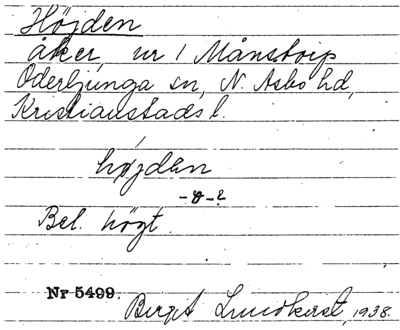 Höjden
åker, nr 1 Månstorp
Oderljunga sn, N. Åsbo hd,
Kristianstads l.
højdån
-ø-?
Bel. högt.
Nr 5499.
Birgit Lundkvist, 1938.